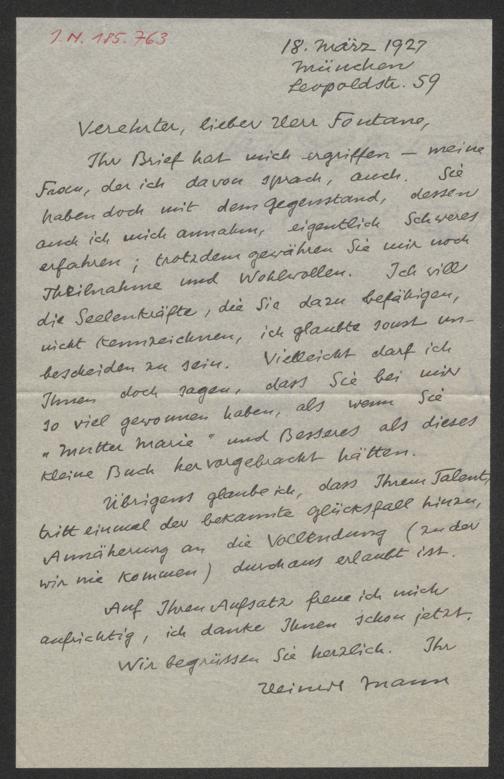 I.N. 185.763
18. März 1927
München
Leopoldstr. 59
Verehrter, lieber Herr Fontana,
Ihr Brief hat mich ergriffen – meine
Frau, der ich davon sprach, auch. Sie
haben doch mit dem Gegenstand, dessen
auch ich mich annahm, eigentlich Schweres
erfahren; trotzdem gewähren Sie mir noch
Theilnahme und Wohlwollen. Ich will
die Seelenkräfte, die Sie dazu befähigen,
nicht kennzeichnen, ich glaubte sonst un-
bescheiden zu sein. Vielleicht darf ich
Ihnen doch sagen, dass Sie bei mir
so viel gewonnen haben, als wenn Sie
"Mutter Marie" und Besseres als dieses
kleine Buch hervorgebracht hätten.
Übrigens glaube ich, dass Ihrem Talent,
tritt einmal der bekannte Glücksfall hinzu,
Annäherung an die Vollendung (zu der
wir nie kommen) durchaus erlaubt ist.
Auf Ihren Aufsatz freue ich mich
aufrichtig, ich danke Ihnen schon jetzt.
Wir begrüssen Sie herzlich. Ihr
Heinrich Mann